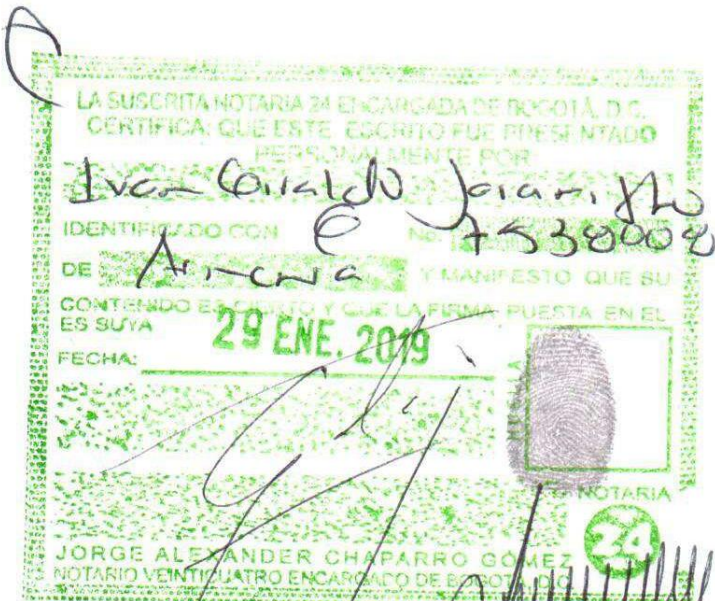 LA SUSCRITA NOTARIA 24 ENCARGADA DE BOGOTÁ, D.C.
CERTIFICA: QUE ESTE ESCRITO FUE PRESENTADO
PERSONALMENTE POR
Ivan Giraldo Jaramillo
IDENTIFICADO CON C No. 7538008
DE Armenia Y MANIFESTO QUE SU
CONTENIDO ES CIERTO Y QUE LA FIRMA PUESTA EN EL
ES SUYA
29 ENE. 2019
FECHA:
HUELLA
NOTARIA
24
JORGE ALEXANDER CHAPARRO GOMEZ
NOTARIO VEINTICUATRO ENCARGADO DE BOGOTA, D.C.